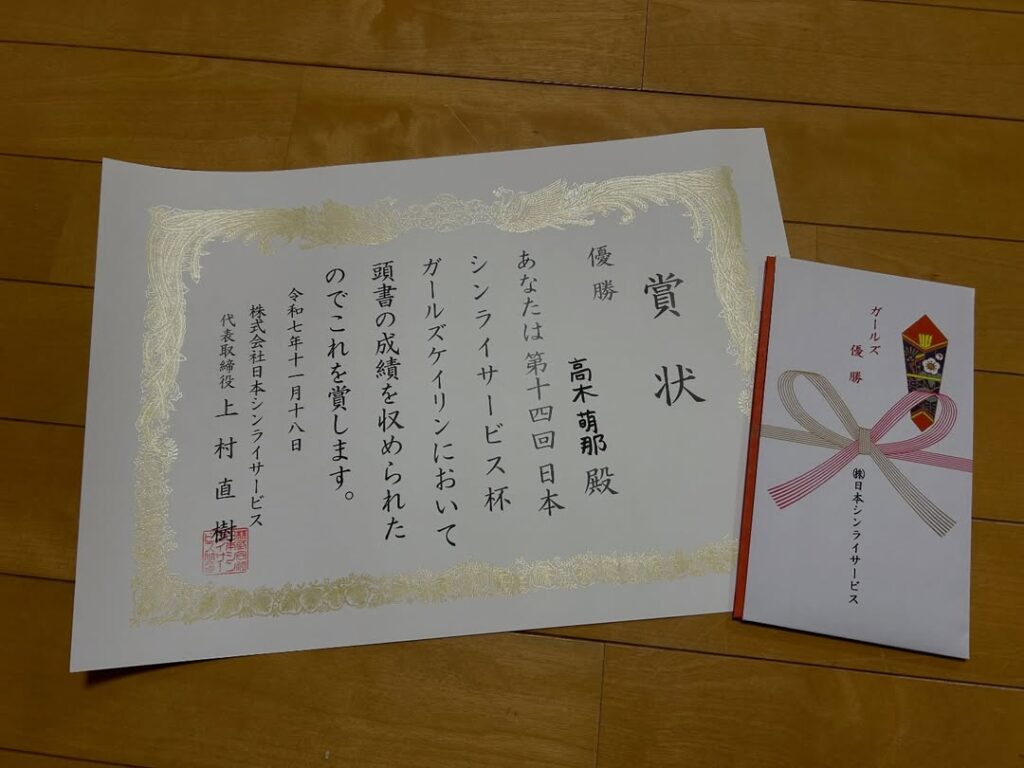 賞状
優勝
高木萌那 殿
あなたは第十四回日本
シンライサービス杯
ガールズケイリンにおいて
頭書の成績を収められた
のでこれを賞します。
令和七年十一月十八日
株式会社日本シンライサービス
代表取締役 上村直樹
ガールズ
優勝
㈱日本シンライサービス